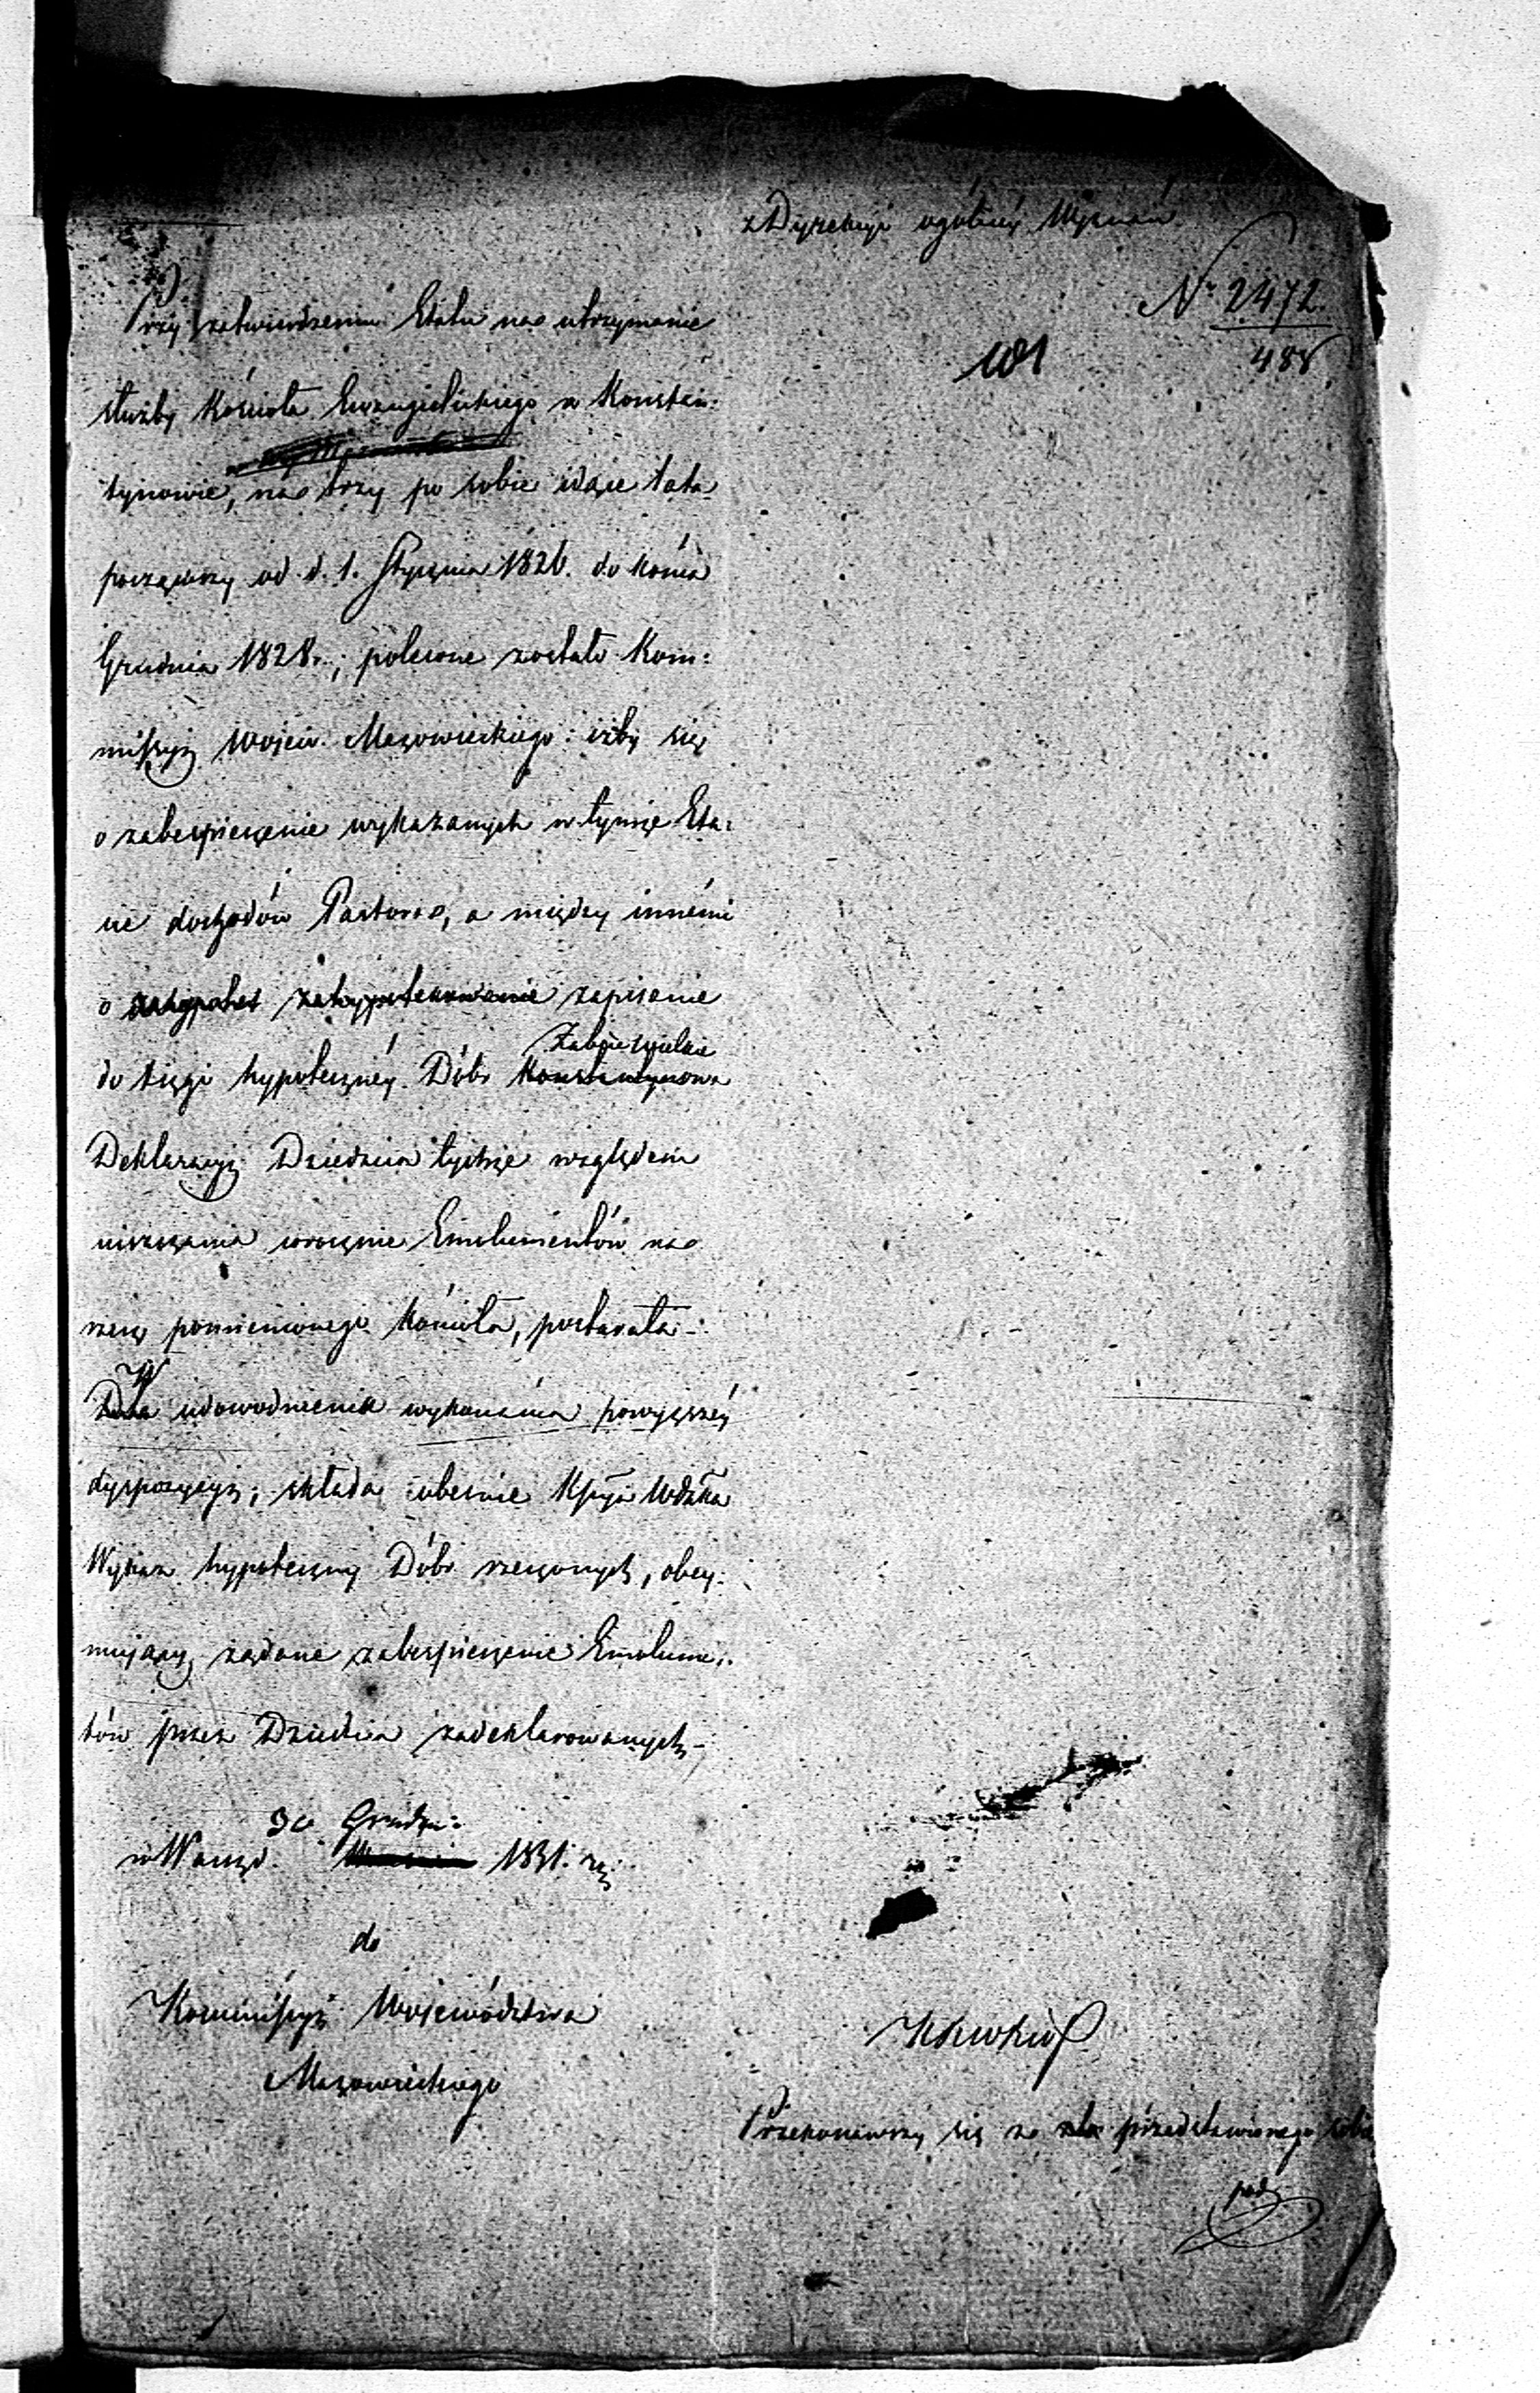 z Dyrekcyi ogólnéy Wyznań
N. 2472.
488
101
Przy zatwierdzeniu Etatu na utrzymanie
służby Kościoła Ewangielickiego w Konstan:
tynowie, na trzy po sobie idące lata
począwszy od d. 1. Stycznia 1826. do końca
Grudnia 1828.; polecone zostało Kom:
missyi Wojew. Mazowieckiego: iżby się
o zabespieczenie wykazanych w tymże Eta:
cie dochodów Pastora, a między innémi
o zahypotekowanie zapisanie
Żabice wielkie
do księgi hypotecznéy Dóbr Konstantynowa
Deklaracyi Dziedzica tychże względem
uiszczania corocznie Emolumentów na
rzecz pomienionego Kościoła, postarała.-
W
udowodnienie wykonania powyższéy
dyspozycyi; składa obecnie Kssya Wdzka
Wykaz hypoteczny Dóbr rzeczonych, obey:
mujący żądane zabespieczenie Emolumen:
tów przez Dziedzica zadeklarowanych.-
30 Grudn:
w Warsz. 1831. r.
do
Kommissyi Województwa
Mazowieckiego
Przekonawszy się ze przedstawionego sobie